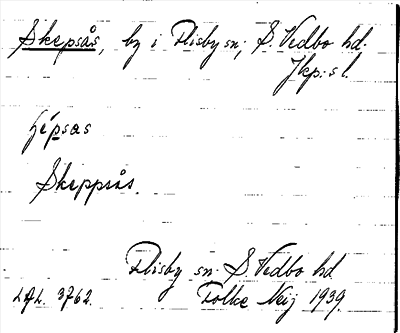 Skepsås, by i Flisby sn, S. Vedbo hd.
Jkp:s l.
Skeppsås.
Flisby sn S. Vedbo hd
LAL. 3762. Folke Neij 1939.